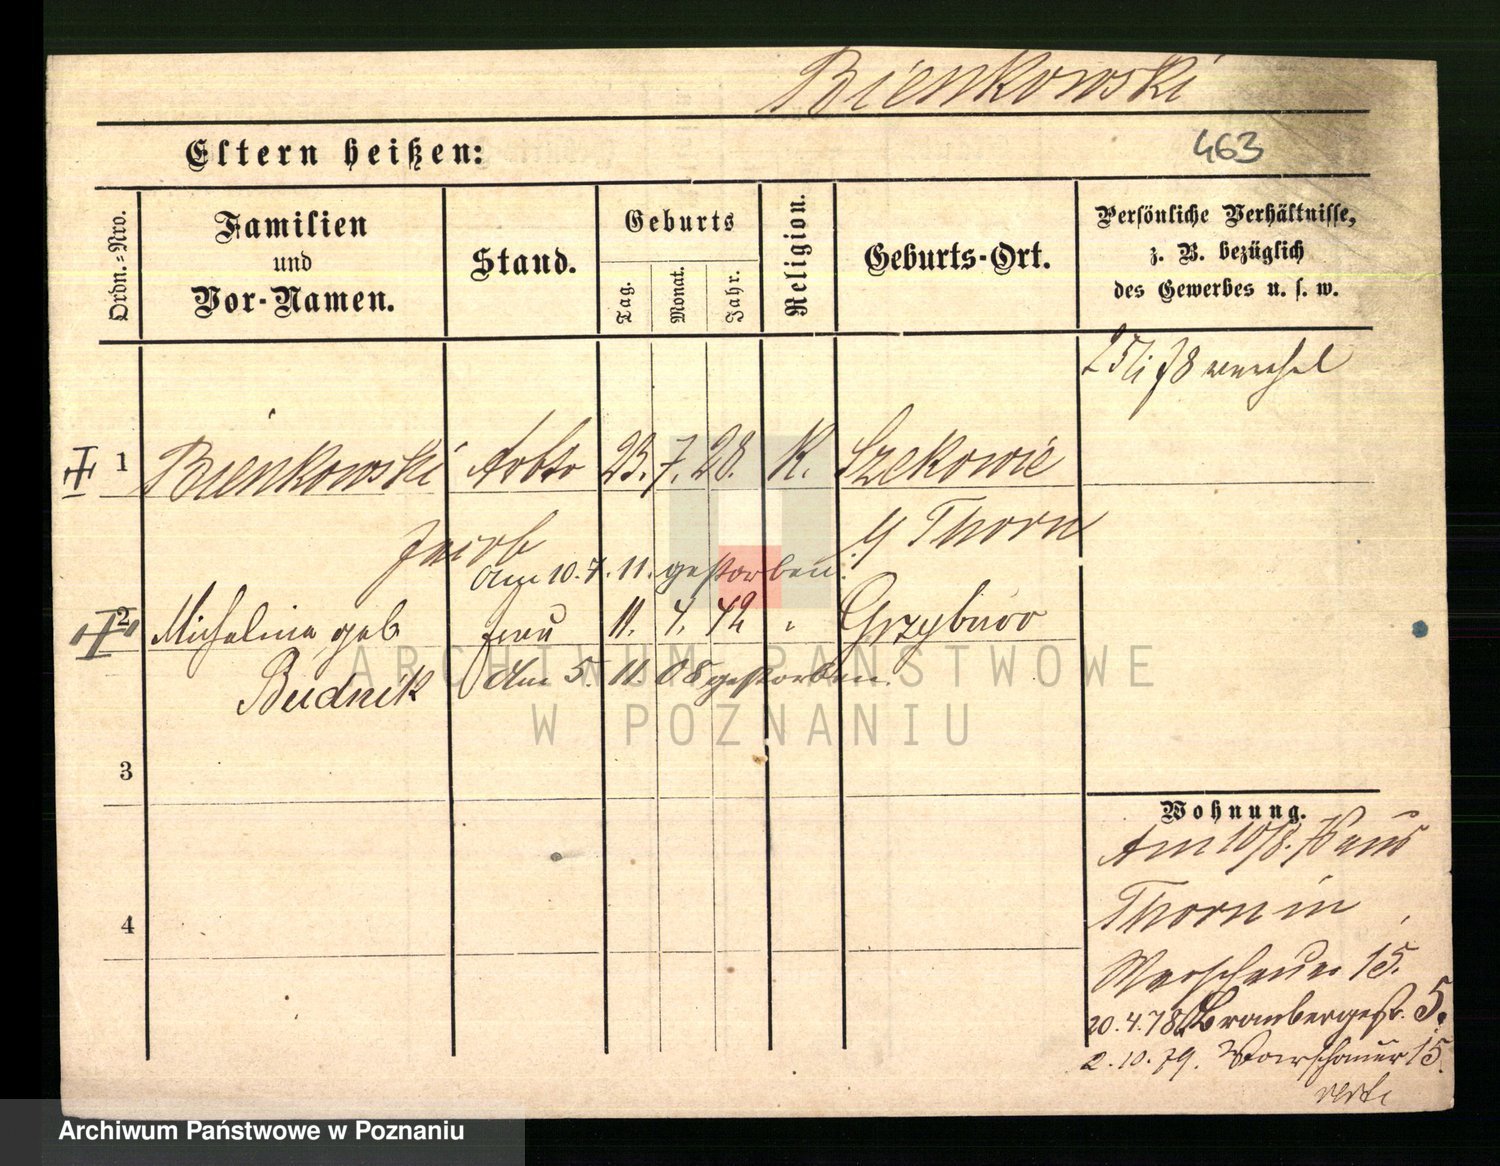 Bienkowski
463
Eltern heißen:
Ordn.-Nro.
Familien
und
Vor-Namen.
Stand.
Geburts
Tag.
Monat.
Jahr.
Religion.
Geburts-Ort.
Persönliche Verhältnisse,
z. B. bezüglich
des Gewerbes u. s. w.
1 Bienkowski Arbtr 23. 7. 28. K.
Jacob
Thorn
Am 10. 7. 11. gestorben.
2 Michalina geb Frau 11. 4. 42 "
Budnik
Am 5. 11. 08 gestorben.
3
4
Wohnung.
Am 10/8. aus
Thorn in
Warschauer 15.
20.4.78 Brombergerstr. 5.
2.10.79. Warschauer 15.
verte
ARCHIWUM PAŃSTWOWE
W POZNANIU
Archiwum Państwowe w Poznaniu